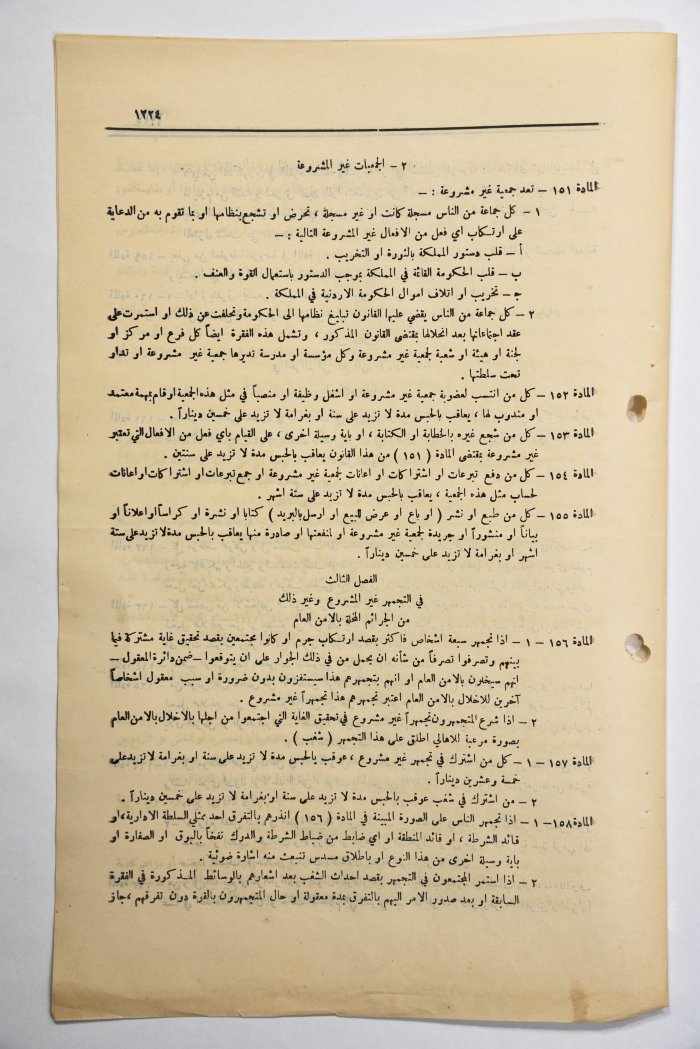 ١٢٢٤
٢ - الجمعيات غير المشروعة
المادة ١٥١ - تعد جمعية غير مشروعة : -
١ - كل جماعة من الناس مسجلة كانت او غير مسجلة ، تحرض او تشجع بنظامها او بما تقوم به من الدعاية
على ارتكاب اي فعل من الافعال غير المشروعة التالية : -
أ - قلب دستور المملكة بالثورة او التخريب .
ب - قلب الحكومة القائمة في المملكة بموجب الدستور باستعمال القوة والعنف .
ج - تخريب او اتلاف اموال الحكومة الاردنية في المملكة .
٢ - كل جماعة من الناس يقضي عليها القانون تبليغ نظامها الى الحكومة وتخلفت عن ذلك او استمرت على
عقد اجتماعاتها بعد انحلالها بمقتضى القانون المذكور ، وتشمل هذه الفقرة ايضاً كل فرع او مركز او
لجنة او هيئة او شعبة لجمعية غير مشروعة وكل مؤسسة او مدرسة تديرها جمعية غير مشروعة او تدار
تحت سلطتها .
المادة ١٥٢ - كل من انتسب لعضوية جمعية غير مشروعة او اشغل وظيفة او منصباً في مثل هذه الجمعية او قام بمهمة معتمد
او مندوب لها ، يعاقب بالحبس مدة لا تزيد على سنة او بغرامة لا تزيد على خمسين ديناراً .
المادة ١٥٣ - كل من شجع غيره بالخطابة او الكتابة ، او باية وسيلة اخرى ، على القيام باي فعل من الافعال التي تعتبر
غير مشروعة بمقتضى المادة ( ١٥١ ) من هذا القانون يعاقب بالحبس مدة لا تزيد على سنتين .
المادة ١٥٤ - كل من دفع تبرعات او اشتراكات او اعانات لجمعية غير مشروعة او جمع تبرعات او اشتراكات او اعانات
لحساب مثل هذه الجمعية ، يعاقب بالحبس مدة لا تزيد على ستة اشهر .
المادة ١٥٥ - كل من طبع او نشر ( او باع او عرض للبيع او ارسل بالبريد ) كتابا او نشرة او كراساً او اعلاناً او
بياناً او منشوراً او جريدة لجمعية غير مشروعة او لمنفعتها او صادرة منها يعاقب بالحبس مدة لا تزيد على ستة
اشهر او بغرامة لا تزيد على خمسين ديناراً .
الفصل الثالث
في التجمهر غير المشروع وغير ذلك
من الجرائم المخلة بالامن العام
المادة ١٥٦ - ١ - اذا تجمهر سبعة اشخاص فاكثر بقصد ارتكاب جرم او كانوا مجتمعين بقصد تحقيق غاية مشتركة فيما
بينهم وتصرفوا تصرفاً من شأنه ان يحمل من في ذلك الجوار على ان يتوقعوا - ضمن دائرة المعقول -
انهم سيخلون بالامن العام او انهم بتجمهرهم هذا سيستفزون بدون ضرورة او سبب معقول اشخاصاً
آخرين للاخلال بالامن العام اعتبر تجمهرهم هذا تجمهراً غير مشروع .
٢ - اذا شرع المتجمهرون تجمهراً غير مشروع في تحقيق الغاية التي اجتمعوا من اجلها بالاخلال بالامن العام
بصورة مرعبة للاهالي اطلق على هذا التجمهر ( شغب ) .
المادة ١٥٧ - ١ - كل من اشترك في تجمهر غير مشروع ، عوقب بالحبس مدة لا تزيد على سنة او بغرامة لا تزيد على
خمسة وعشرين ديناراً .
٢ - من اشترك في شغب عوقب بالحبس مدة لا تزيد على سنة او بغرامة لا تزيد على خمسين ديناراً .
المادة ١٥٨ - ١ - اذا تجمهر الناس على الصورة المبينة في المادة ( ١٥٦ ) انذرهم بالتفرق احد ممثلي السلطة الادارية ، او
قائد الشرطة ، او قائد المنطقة او اي ضابط من ضباط الشرطة والدرك نفخاً بالبوق او الصفارة او
باية وسيلة اخرى من هذا النوع او باطلاق مسدس تنبعث منه اشارة ضوئية .
٢ - اذا استمر المجتمعون في التجمهر بقصد احداث الشغب بعد اشعارهم بالوسائط المذكورة في الفقرة
السابقة او بعد صدور الامر اليهم بالتفرق بمدة معقولة او حال المتجمهرون بالقوة دون تفرقهم ، جاز